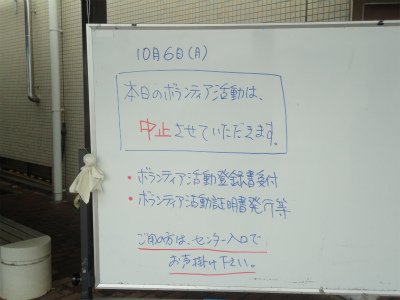 10月6日(月)
本日のボランティア活動は、
中止させていただきます。
• ボランティア活動登録書受付
• ボランティア活動証明書発行等
ご用の方は、センター入口で
お声掛け下さい。